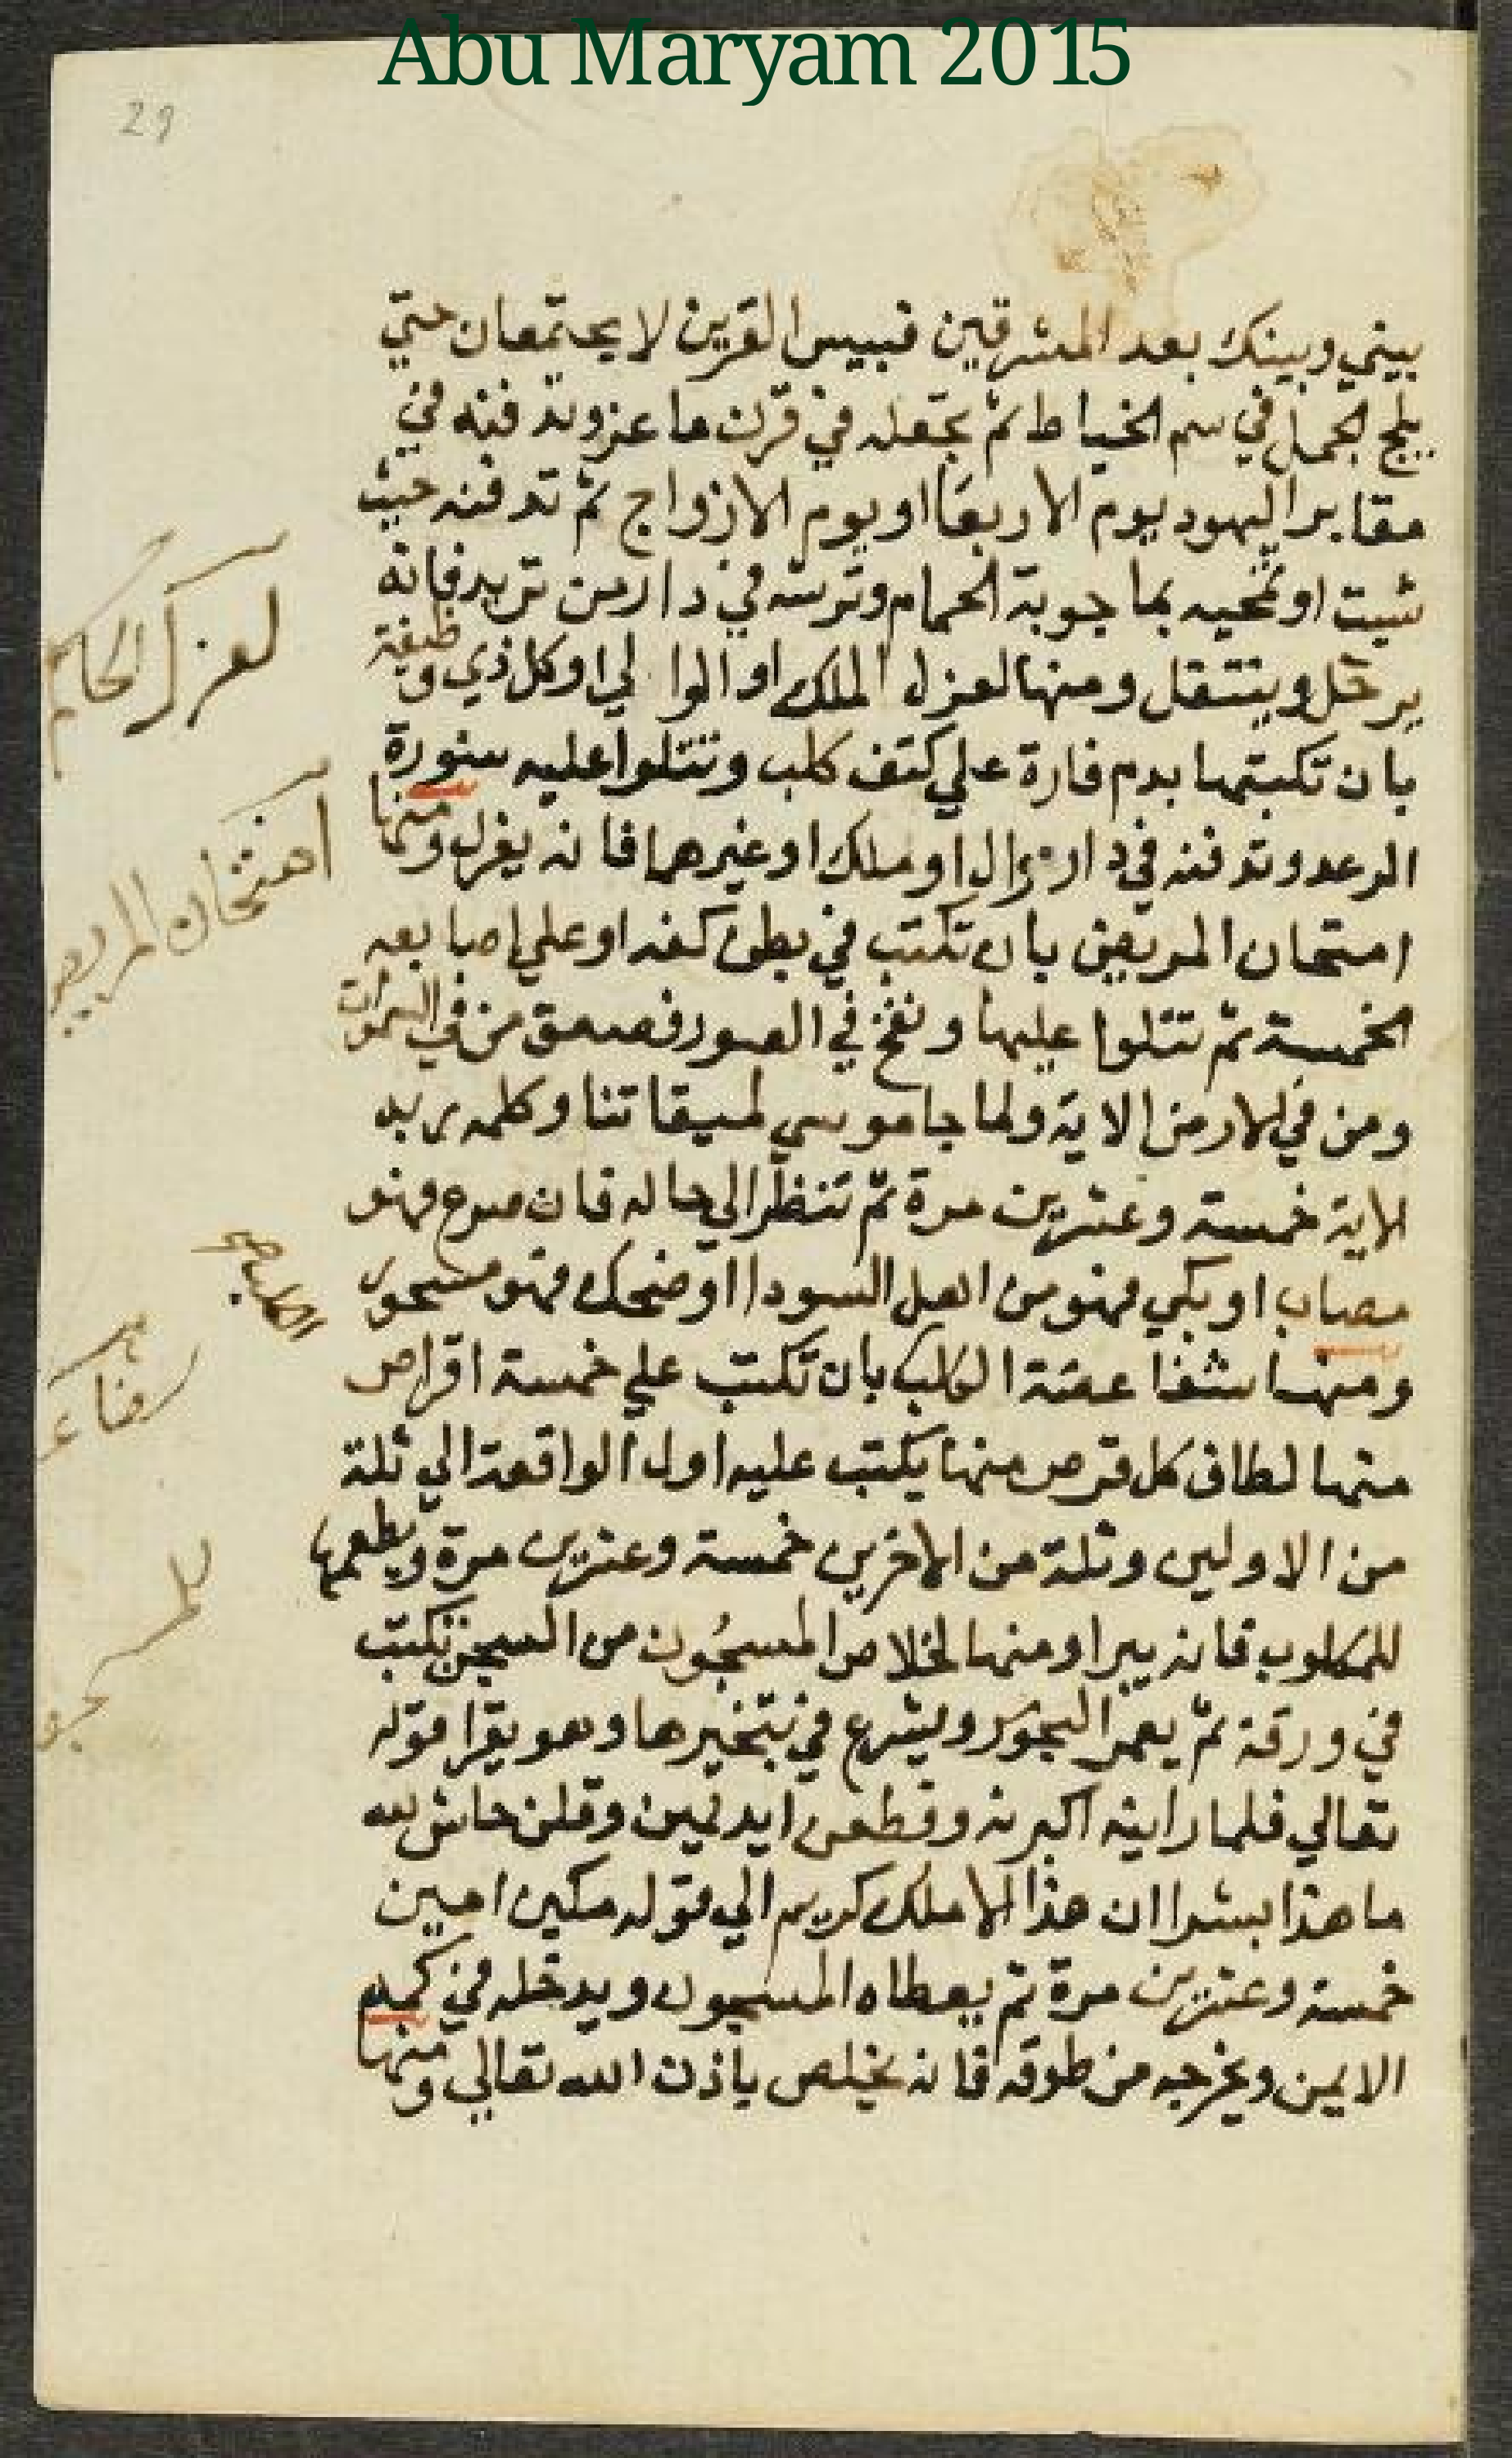 Abu Maryam 2015
29
بيني وبينك بعد المشرقين فبيس القرين لا يجتمعان حتي
يلج الجمل في سم الخياط ثم تجعله في قرن ماعز وتدفنه في
مقابر اليهود يوم الاربعا او يوم الازواج ثم تدفنه حيث
شيت او تمحيه بما جوبة الحمام وترشه في دار من تريد فانه
يرحل وينتقل ومنها لعزل الملك او الوالي او كل ذي وظيفة
بان تكبتها بدم فارة علي كتف كلب وتتلوا عليه سورة
الرعد وتدفنه في دار وال او ملك او غيرهما فانه يعزل ومنها
امتحان المريض بان تكتب في بطن كفه او علي اصابعه
الخمسة ثم تتلوا عليها ونفخ في الصور فصعق من في السموات
ومن في الارض الاية ولما جا موسي لميقاتنا وكلمه ربه
الاية خمسة وعشرين مرة ثم تنظر الي حاله فان صرع فهو
مصاب او بكي فهو من اهل السودا او ضحك فهو مسحور
ومنها شفا عضة الكلب بان تكتب علي خمسة اقراص
منها لطاف كل قرص منها يكتب عليه اول الواقعة الي ثلة
من الاولين وثلة من الاخرين خمسة وعشرين مرة ويطعمها
للمكلوب فانه يبرا ومنها لخلاص المسجون من السجن تكتب
في ورقة ثم يعمر البخور ويشرع في تبخيرها وهو يقرا قوله
تعالي فلما راينه اكبرنه وقطعن ايديهن وقلن حاش لله
ما هذا بشرا ان هذا الا ملك كريم الي قوله مكين امين
خمسة وعشرين مرة ثم يعطاه المسجون ويدخله في كمه
الايمن ويخرجه من طوقه فانه يخلص باذن الله تعالي ومنها
لعزل الحاكم
امتحان المريض